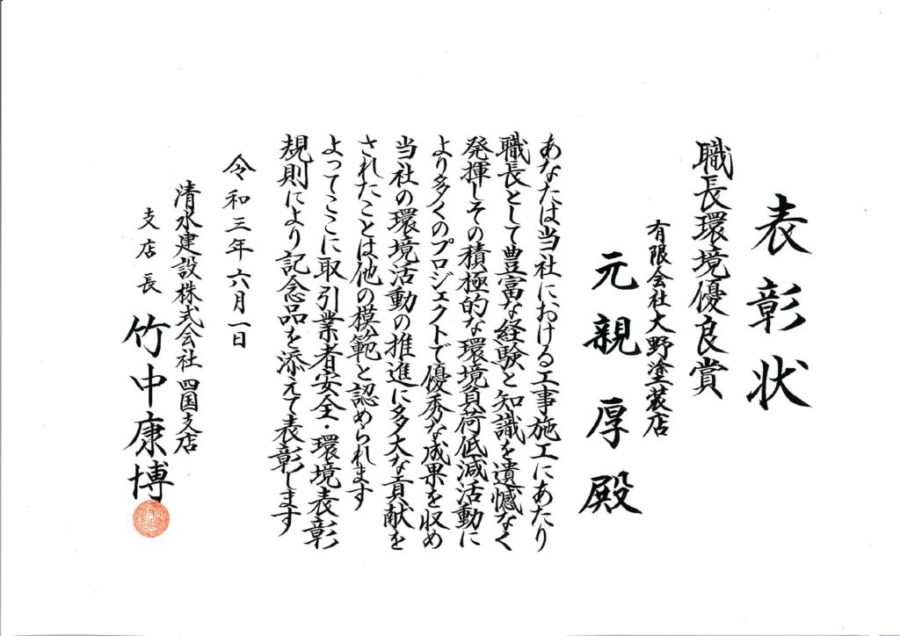 表彰状
職長環境優良賞
有限会社大野塗装店
元親 厚 殿
あなたは当社における工事施工にあたり
職長として豊富な経験と知識を遺憾なく
発揮しその積極的な環境負荷低減活動に
より多くのプロジェクトで優秀な成果を収め
当社の環境活動の推進に多大な貢献を
されたことは他の模範と認められます
よってここに取引業者安全・環境表彰
規則により記念品を添えて表彰します
令和三年六月一日
清水建設株式会社 四国支店
支店長 竹中康博